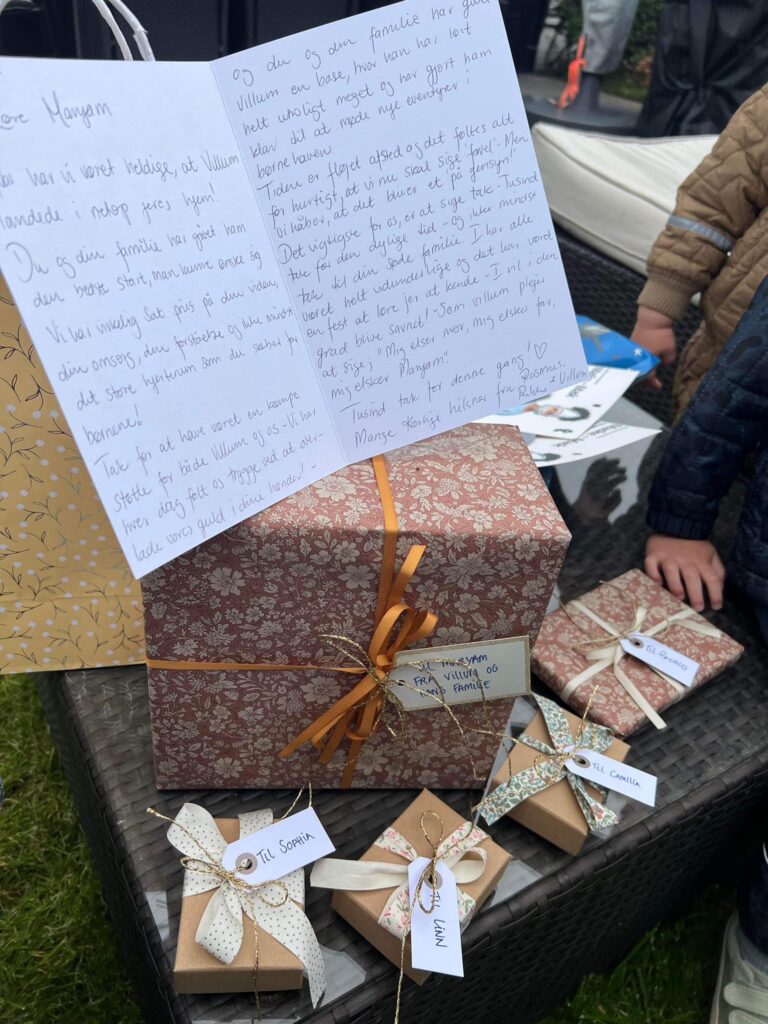 Kære Maryam
har vi været heldige, at Villum
landede i netop jeres hjem!
Du og din familie har gjort ham
den bedste start, man kunne ønske sig
Vi har virkelig sat pris på din viden,
din omsorg, din forståelse og ikke mindst
det store hjerterum som du skaber for
børnene!
Tak for at have været en kæmpe
støtte for både Villum og os - Vi har
hver dag følt os trygge ved at over-
lade vores guld i dine hænder! -
og du og din familie har givet
Villum en base, hvor han har lært
helt utroligt meget og har gjort ham
klar til at møde nye eventyr i
børnehaven.
Tiden er fløjet afsted og det føltes alt
for hurtigt, at vi nu skal sige "farvel" - Men
vi håber, at det bliver et "på gensyn"!
Det vigtigste for os, er at sige tak - Tusind
tak for den dejlige tid - og ikke mindst
tak til din søde familie. I har alle
været helt vidunderlige og det har været
en fest at lære jer at kende - I vil i den
grad blive savnet! - Som Villum plejer
at sige, "Mig elser mor, mig elsker far,
mig elsker Maryam"
Tusind tak for denne gang! ♡
Mange kærlige hilsner fra Rasmus,
& Villum
TIL MARYAM
FRA VILLUM OG
HANS FAMILIE
TIL
TIL CAMILLA
TIL SOPHIA
TIL LINN